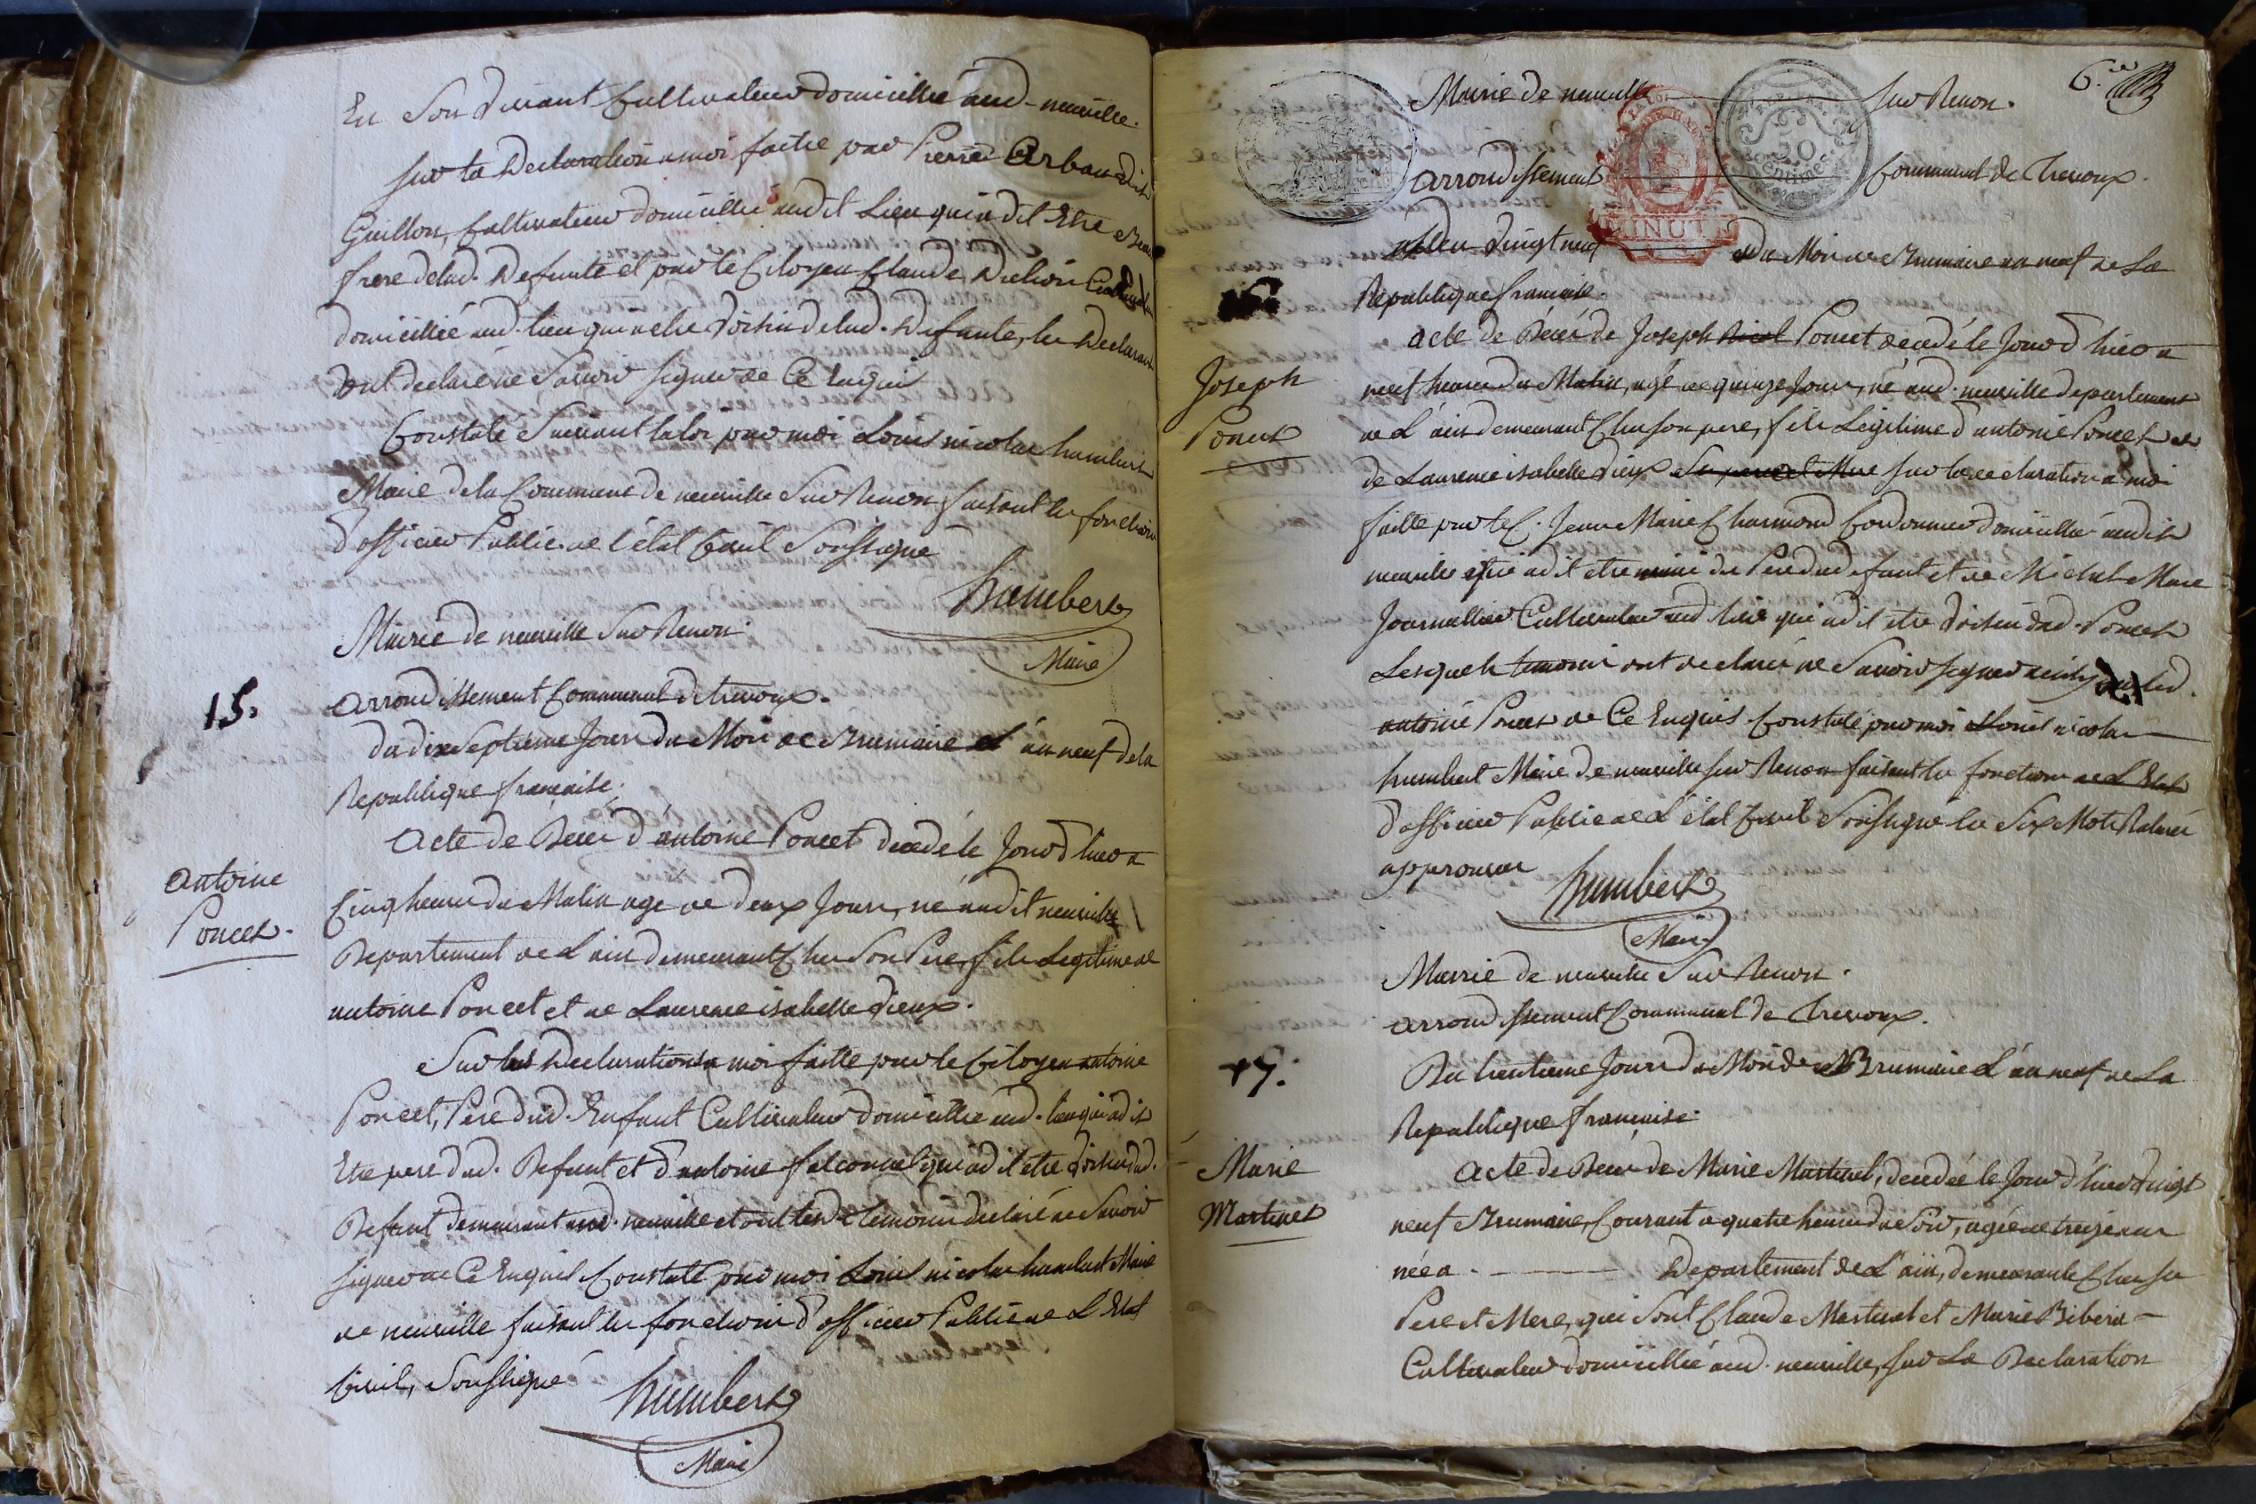 En Son vivant Cultivateur domicillié aud. neuville.
Sur la Declaration a moi faitte par Pierre Arban dit
Guillon, Cultivateur domicillié audit Lieu qui a dit Etre Beau
frere delad. Defunte et par le Citoyen Claude
domicillié aud. lieu qui a etre voisin delad. Defunte, les Declarant
ont declaré ne Savoir signer de Ce Enquis
Constaté Suivant la loi par moi Louis nicolas humbert
Maire de la Commune de neuville Sur Renon faisant les fonctions
d'officier Public de l'état Civil Soussigné
humbert
Maire
Mairie de neuville Sur Renon.
15.
arrondissement Communal de trevoux.
du dix Septieme Jour du Mois de Brumaire L'an neuf de la
Republique francaise.
acte de Décès d'antoine Poncet decedé le Jour d'hier a
antoine
Poncet.
Cinq heures du Matin agé de deux Jours, né audit neuville
Departement de L'ain demeurant Chez Son Pere, fils Legitime de
antoine Poncet et de Laurence isabelle vieux.
Sur les Declarations a moi faitte par le Citoyen antoine
Poncet, Pere dud. Enfant Cultivateur domicillié aud. lieu qui a dit
Etre pere dud. Defunt et d'antoine falconnet qui a dit etre voisin dud.
Defunt demeurant aud. neuville et ont lesd. temoins declaré ne Savoir
signer de Ce Enquis Constaté par moi Louis nicolas humbert Maire
de neuville faisant les fonctions d'officier Public de L'Etat
Civil, Soussigné
humbert
Maire
6.e
Mairie de neuville Sur Renon.
arrondissement Communal de Trevoux.
50
Centimes
MINUTE
vingt neuf du Mois de Brumaire an neuf de La
16.
Republique francaise.
acte de Décès de Joseph Poncet decedé le Jour d'hier a
Joseph
Poncet
neuf heures du Matin, agé de quinze Jours, né aud. neuville departement
de L'ain demeurant Chez son pere, fils Légitime d'antoine Poncet et
de Laurence isabelle vieux Ses pere et Mere sur la declaration a moi
faitte par le C. Jean Marie Charmond Cordonnier domicillié audit
neuville qui a dit etre ami du Pere dud. defunt et de Michel Mare
Journallier Cultivateur aud. lieu qui a dit etre voisin dud. Poncet
Lesquels temoins ont declaré ne Savoir signer led.
antoine Poncet de Ce Enquis Constaté par moi Louis nicolas
humbert Maire de neuville sur Renon faisant les fonctions de L'Etat
d'officier Public de L'état Civil Soussigné les Six Mots Raturés
approuvés
humbert
Maire
Mairie de neuville Sur Renon.
arrondissement Communal de Trevoux.
17.
Du trentieme Jour du Mois de Brumaire L'an neuf de La
Republique francaise.
Marie
Martinet
acte de Décès de Marie Martinet, decedée le Jour d'hier vingt
neuf Brumaire, Courant a quatre heures du Soir, agée de treize ans
née a Departement de L'ain, demeurante Chez ses
Pere et Mere, qui Sont Claude Martinet et Marie Ribera
Cultivateur domicillié aud. neuville, sur La Declaration